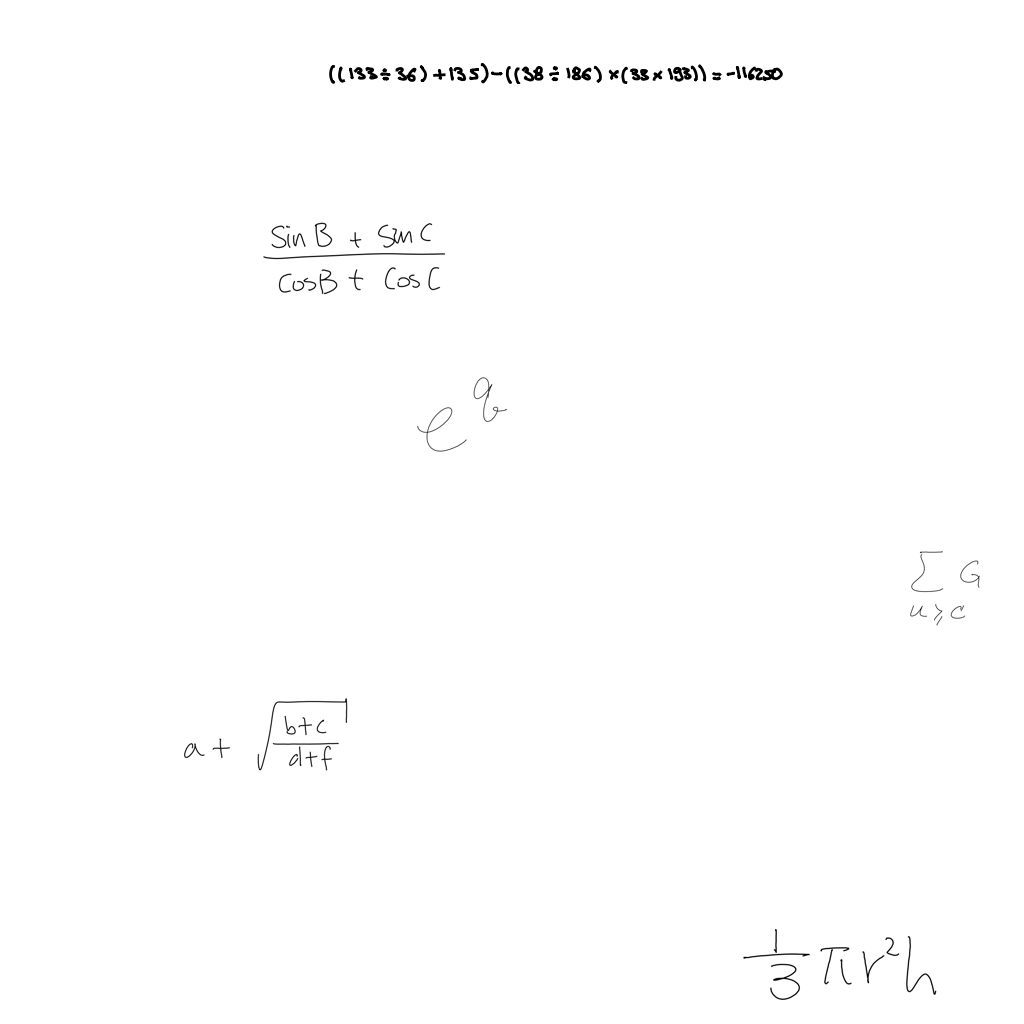 ((133÷36)+135)-((38÷186)×(33×193))=-116250
\frac{\sin B + \sin C}{\cos B + \cos C}
e^{q}
\sum_{u \geqslant c} G
a + \sqrt{\frac{b+c}{d+f}}
\frac{1}{3} \pi r^2 h